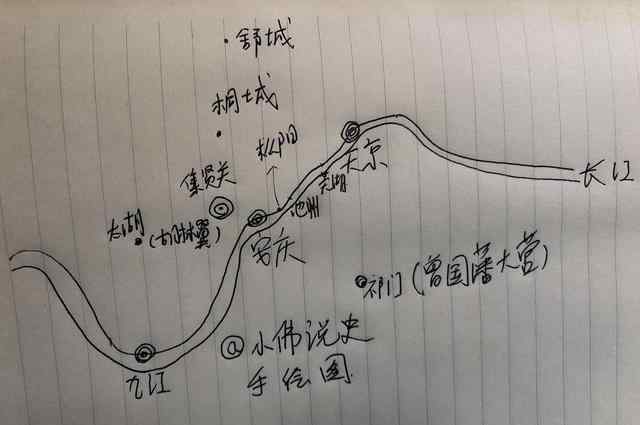 舒城
桐城
枞阳
天京
芜湖
长江
集贤关
池州
太湖
(胡林翼)
安庆
祁门(曾国藩大营)
@小佛说史
手绘图
九江